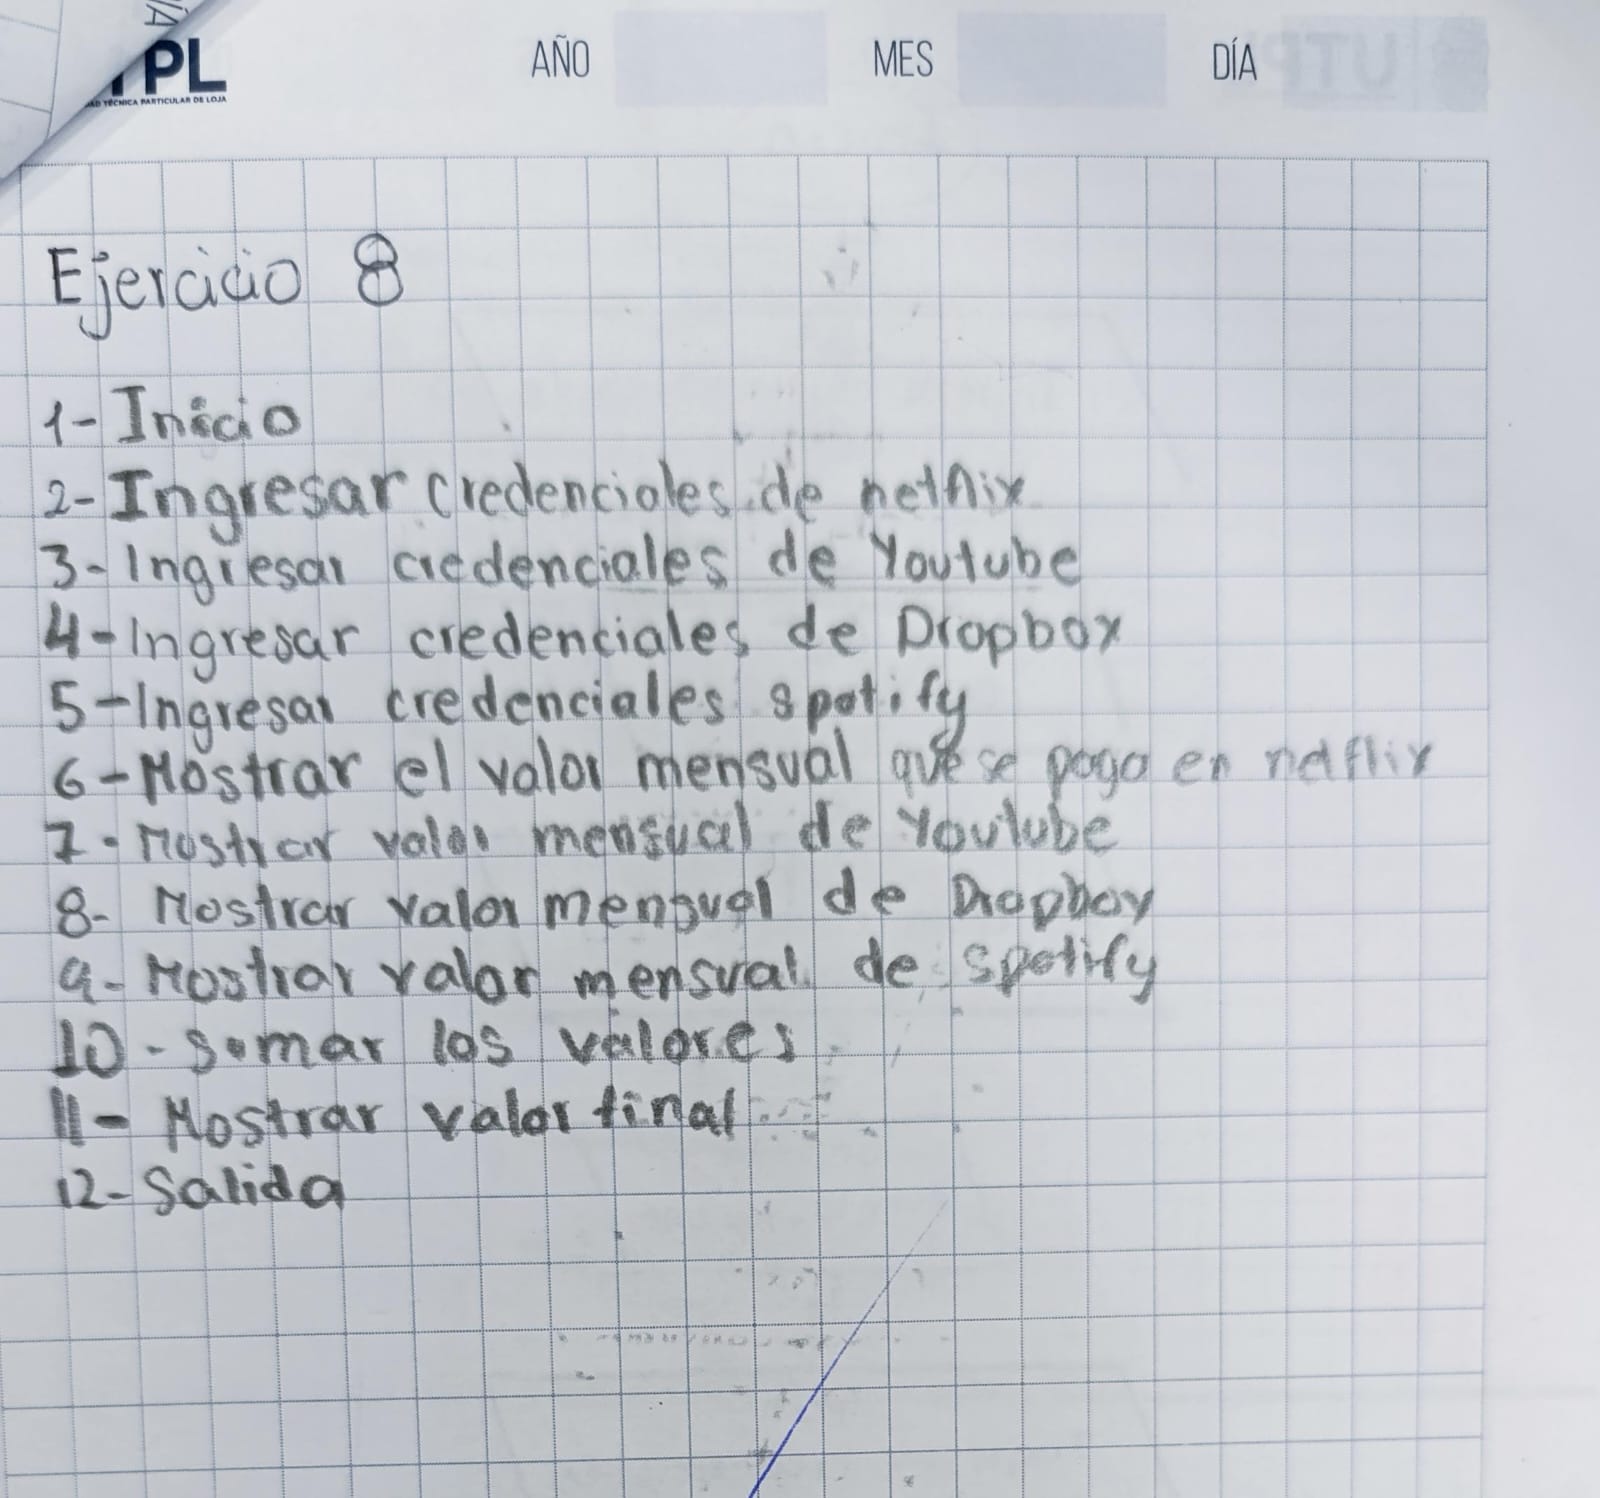 PL
TÉCNICA PARTICULAR DE LOJA
AÑO MES DÍA
Ejercicio 8
1- Inicio
2- Ingresar credenciales de netflix
3- Ingresar credenciales de Youtube
4- Ingresar credenciales de Dropbox
5- Ingresar credenciales spotify
6- Mostrar el valor mensual que se paga en netflix
7- Mostrar valor mensual de Youtube
8- Mostrar valor mensual de Dropbox
9- Mostrar valor mensual de spotify
10- Somar los valores
11- Mostrar valor final
12- Salida